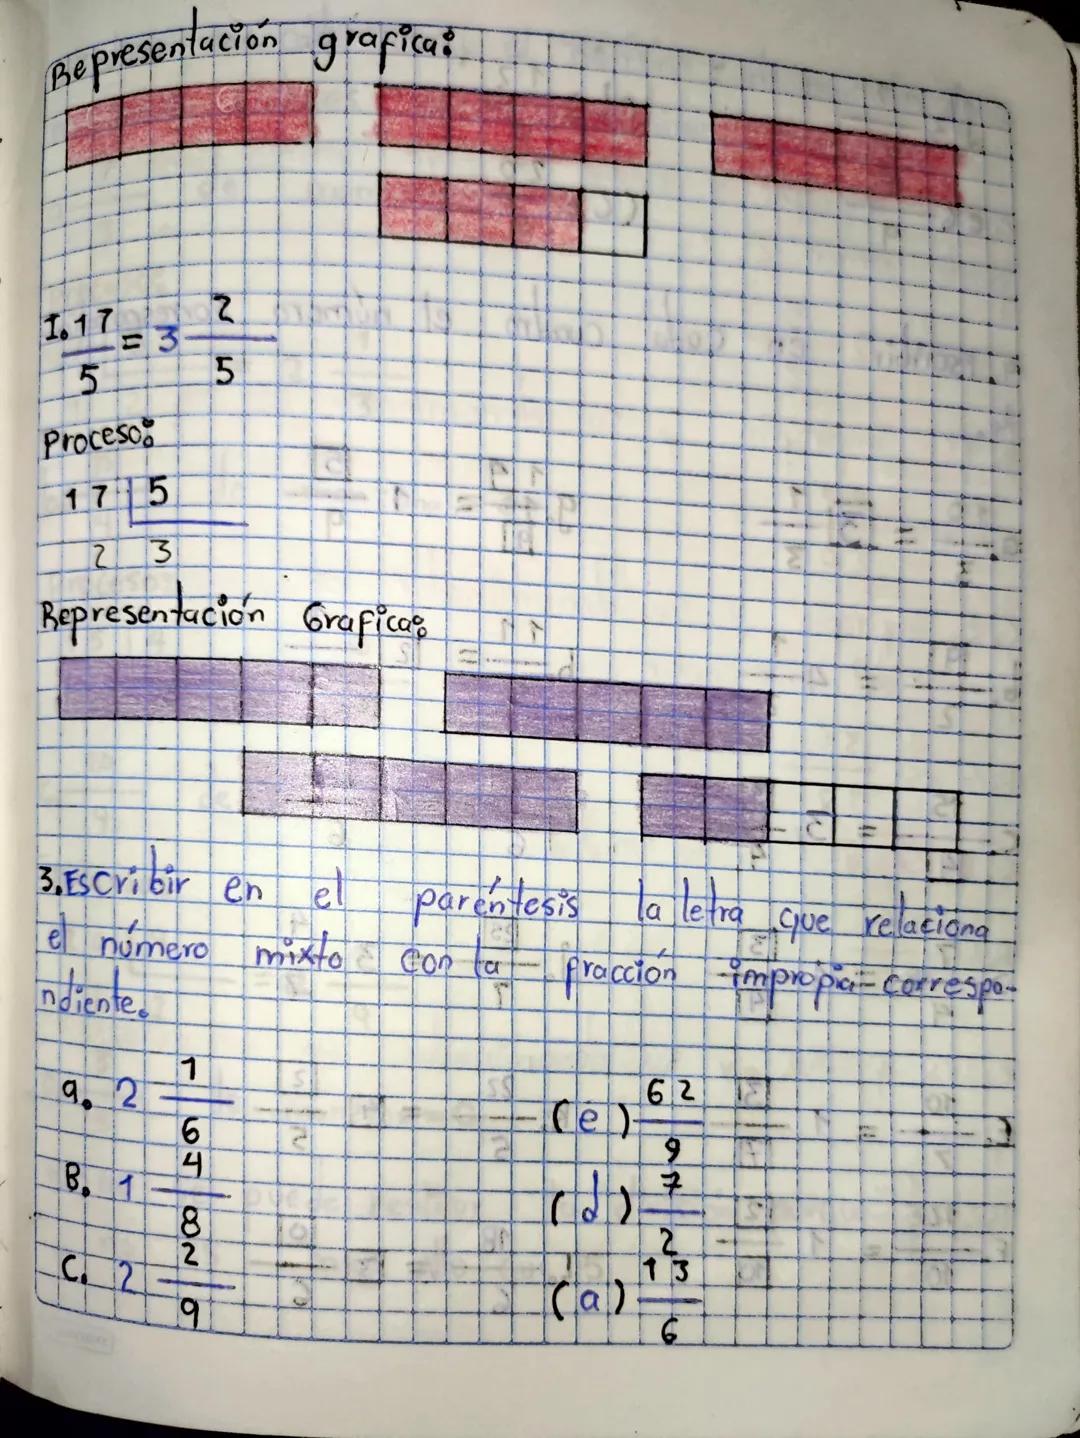 Representación grafica:
I. 17/5 = 3 2/5
Proceso:
17 | 5
2 3
Representación Grafica:
3. Escribir en el paréntesis la letra que relaciona
el número mixto con la fracción impropia correspo-
ndiente.
a. 2 1/6 (e) 62/9
B. 1 4/8 (d) 7/2
C. 2 2/9 (a) 13/6